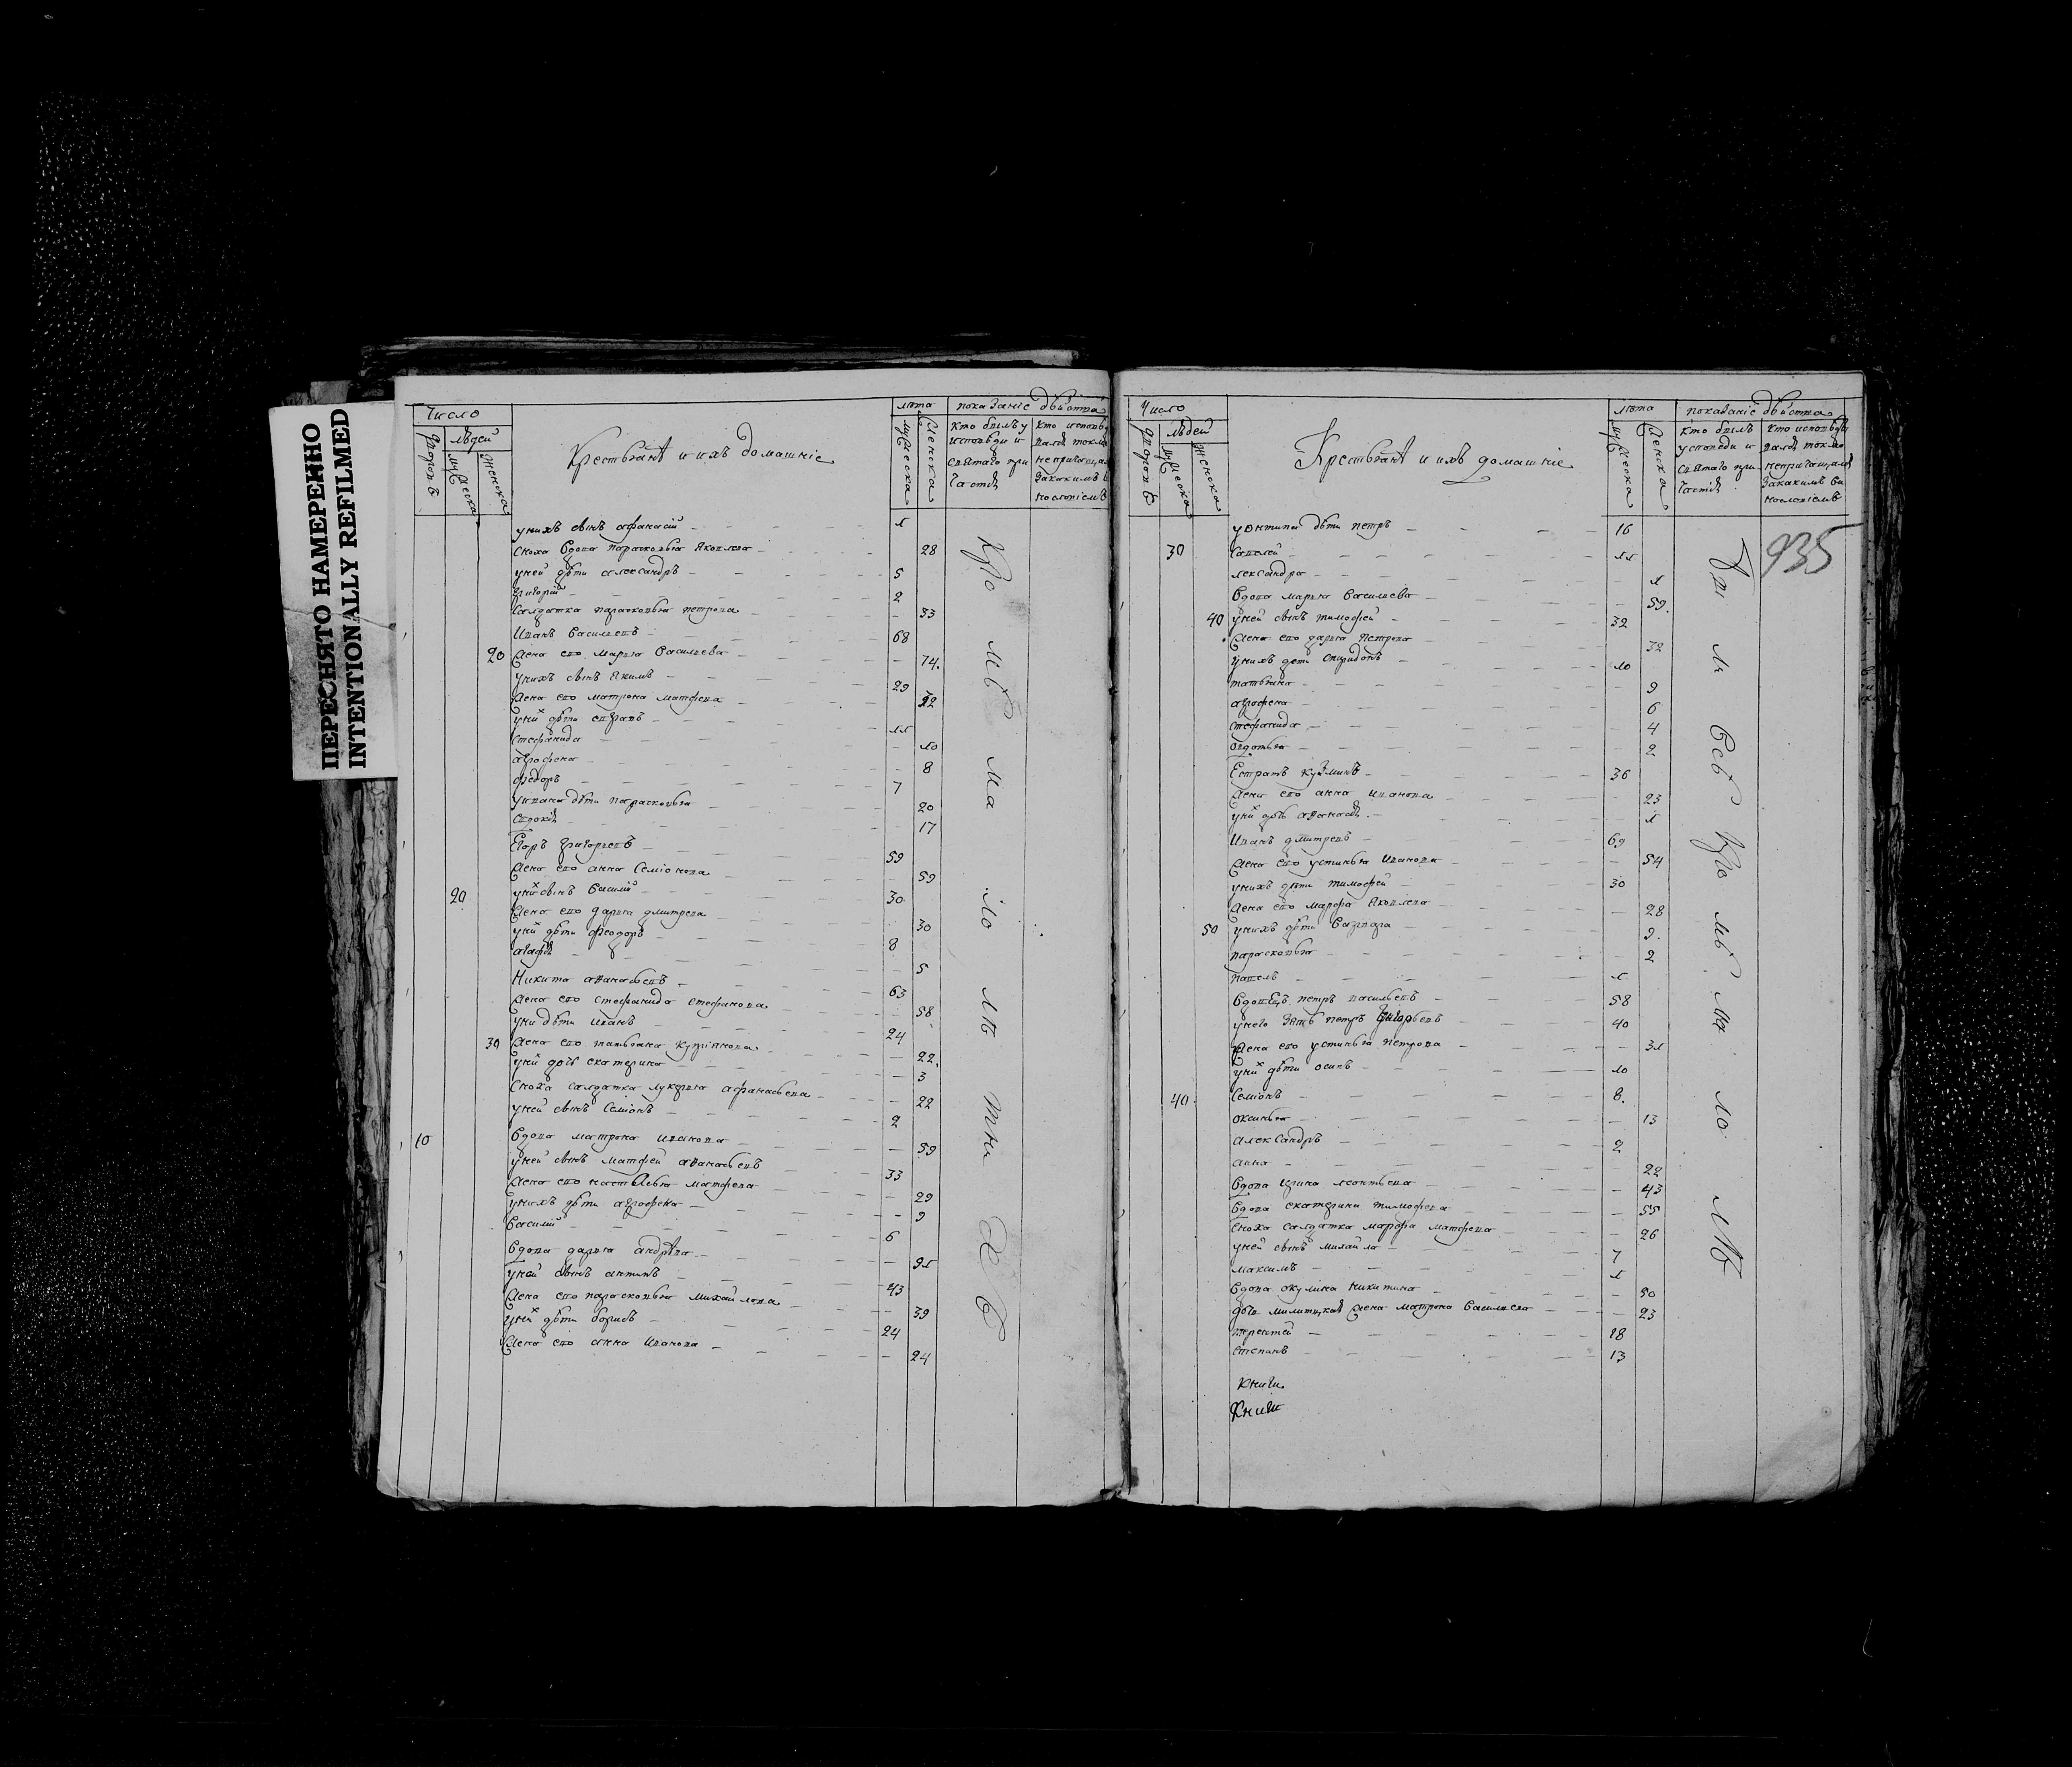 ПЕРЕСНЯТО НАМЕРЕННО
INTENTIONALLY REFILMED
Число
людей
дворовъ
мужеска
женска
Крестьянѣ и ихъ домашніе
лѣта
мужеска
женска
показаніе двиства
у нихъ сынъ афанасій 1
сноха вдова парасковья Яковлева 28
у ней дѣти александръ 5
григорій 2
салдатка парасковья петрова 33
Иванъ Васильевъ 68
20 жена его марья Васильева 74
у нихъ сынъ Якимъ 29
жена его матрона матфева
у них дѣти евграпъ 11
стефанида 10
агрофена 8
федоръ 7
у ивана дѣти парасковья 20
евдокія 17
Егоръ григорьевъ 59
жена его анна Семіонова 59
20 у них сынъ Василій 30
жена его дарья дмитрева 30
у них дѣти феодоръ 8
агафія 5
Никита аванасьевъ 63
жена его стефанида стефанова 58
у ни дѣти иванъ 24
30 жена его татьяна купріянова 22
у них дочь екатерина 3
сноха салдатка лукерья афанасьева 22
у ней сынъ Семіонъ 2
10 Вдова матрона иванова 59
у ней сынъ матфей аванасьевъ 33
жена его настасья матфева 29
у нихъ дѣти агрофена 9
Василій 6
Вдова дарья андрѣева 91
у ней сынъ антипъ 43
жена его парасковья михайлова 39
у них дѣти борисъ 24
жена его анна иванова 24
Число
людей
дворовъ
мужеска
женска
Крестьянѣ и ихъ домашніе
лѣта
мужеска
женска
показаніе двиства
935
у онтипа дѣти петръ 16
30 савелей 11
лександра 1
Вдова марья Васильева 59
40 у ней сынъ тимофей 32
жена его дарья петрова 32
у нихъ дети спиридонъ 10
татьяна 9
агрофена 6
стефанида 4
овдотья 2
Естратъ кузминъ 36
жена его анна иванова 23
у них дочь аванасія 1
Иванъ дмитревъ 69
жена его устинья иванова 54
у нихъ дѣти тимофей 30
жена его марфа яковлева 28
50 у нихъ дѣти варвара 9
парасковья 2
павелъ 1
Вдовецъ петръ васильевъ 58
у него зять петръ григорьевъ 40
жена его устинья петрова 31
у них дѣти осипъ 10
40 Семіонъ 8
оксинья 13
александръ 2
анна 22
Вдова ирина леонтьева 43
Вдова екатерина тимофева 55
сноха салдатка марфа матфева 26
у ней сынъ михайла 7
максимъ 1
Вдова окулина никитина 50
дочь милитцкая жена матрона Васильева 23
терентей 18
степанъ 13
книги
книги